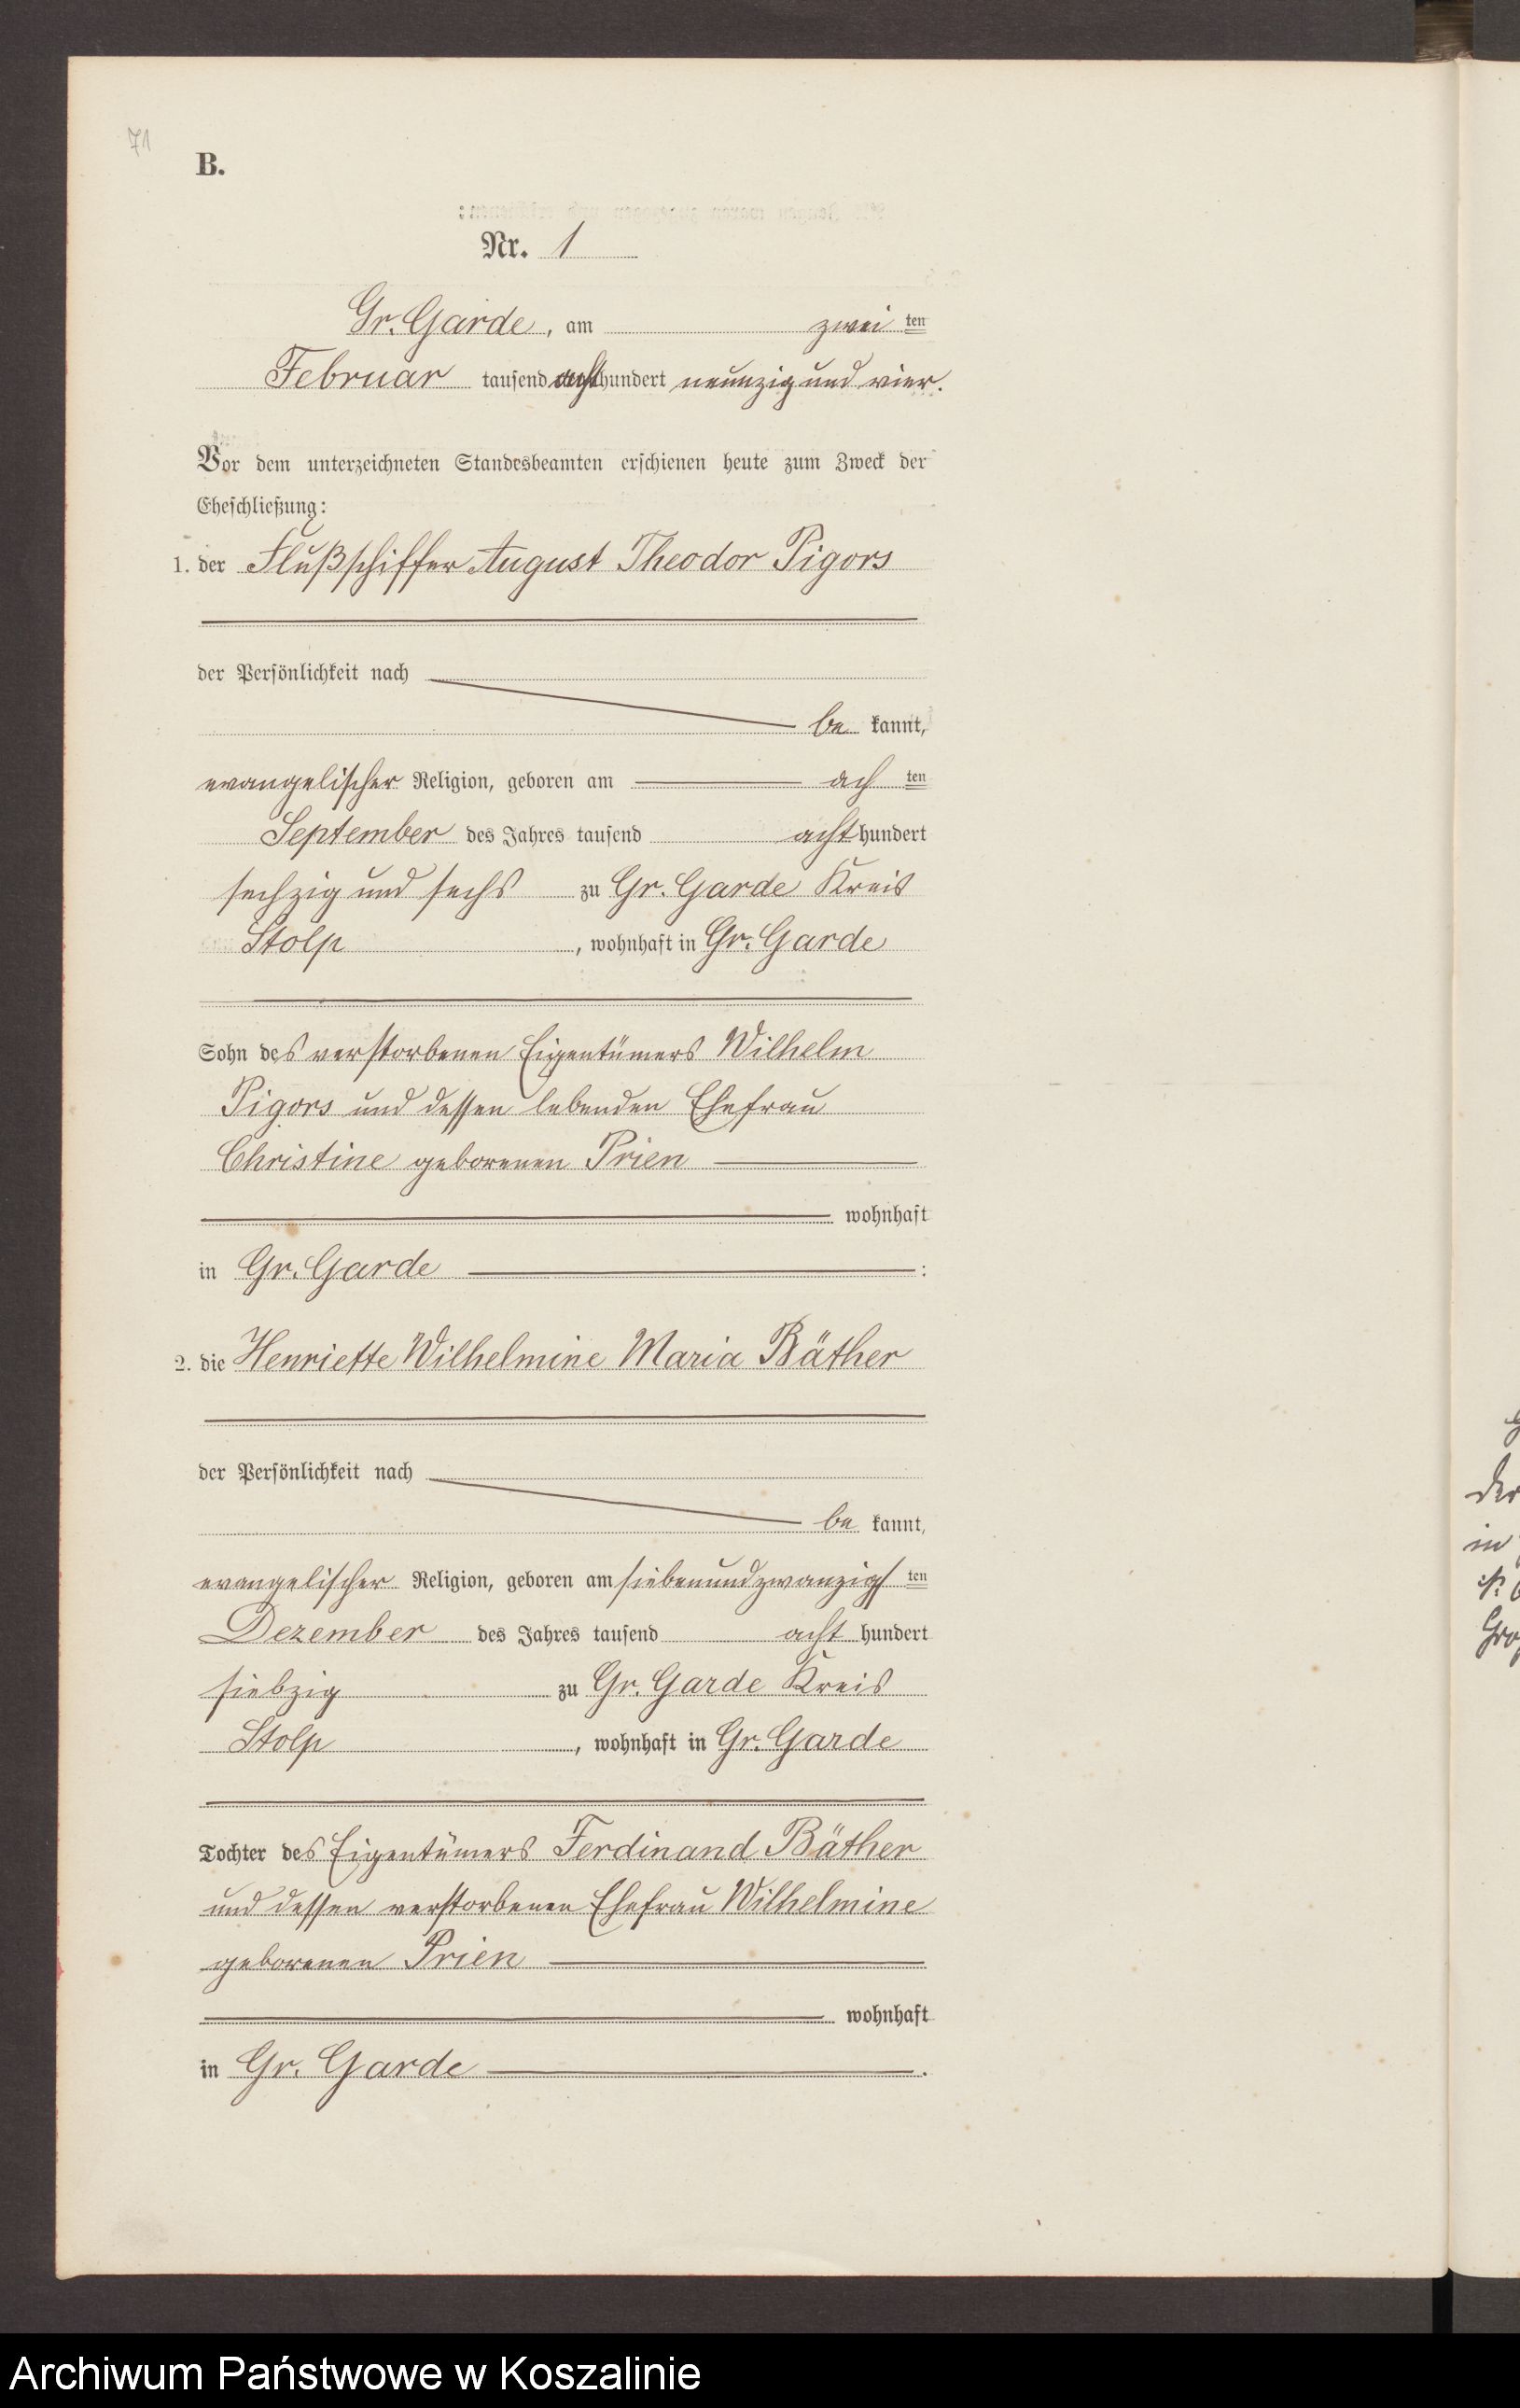 71
B.
Nr. 1
Gr. Garde, am zwei ten
Februar tausend acht hundert neunzig und vier.
Vor dem unterzeichneten Standesbeamten erschienen heute zum Zweck der
Eheschließung:
1. der Flußschiffer August Theodor Pigors
der Persönlichkeit nach
be kannt,
evangelischer Religion, geboren am ach ten
September des Jahres tausend acht hundert
sechzig und sechs zu Gr. Garde Kreis
Stolp, wohnhaft in Gr. Garde
Sohn des verstorbenen Eigentümers Wilhelm
Pigors und dessen lebenden Ehefrau
Christine geborenen Prien
wohnhaft
in Gr. Garde :
2. die Henriette Wilhelmine Maria Bäther
der Persönlichkeit nach
be kannt,
evangelischer Religion, geboren am siebenundzwanzigs ten
Dezember des Jahres tausend acht hundert
siebzig zu Gr. Garde Kreis
Stolp, wohnhaft in Gr. Garde
Tochter des Eigentümers Ferdinand Bäther
und dessen verstorbenen Ehefrau Wilhelmine
geborenen Prien
wohnhaft
in Gr. Garde .
der
in
Archiwum Państwowe w Koszalinie